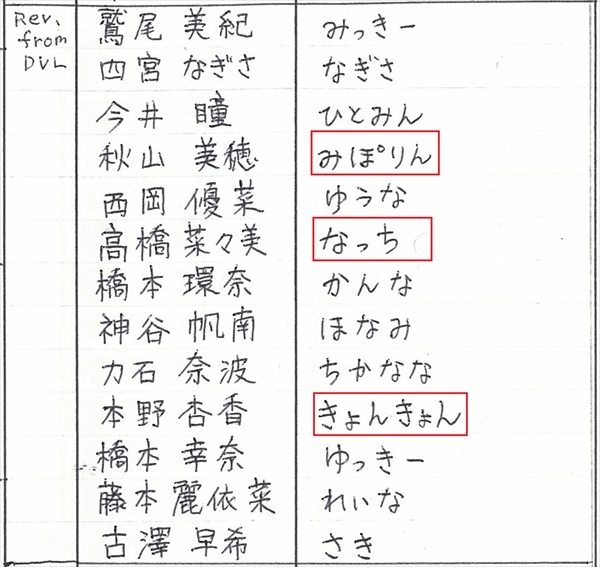 Rev.
from
DVL
鷲尾 美紀 みっきー
四宮 なぎさ なぎさ
今井 瞳 ひとみん
秋山 美穂 みぽりん
西岡 優菜 ゆうな
高橋 菜々美 なっち
橋本 環奈 かんな
神谷 帆南 ほなみ
力石 奈波 ちかなな
本野 杏香 きょんきょん
橋本 幸奈 ゆっきー
藤本 麗依菜 れぃな
古澤 早希 さき